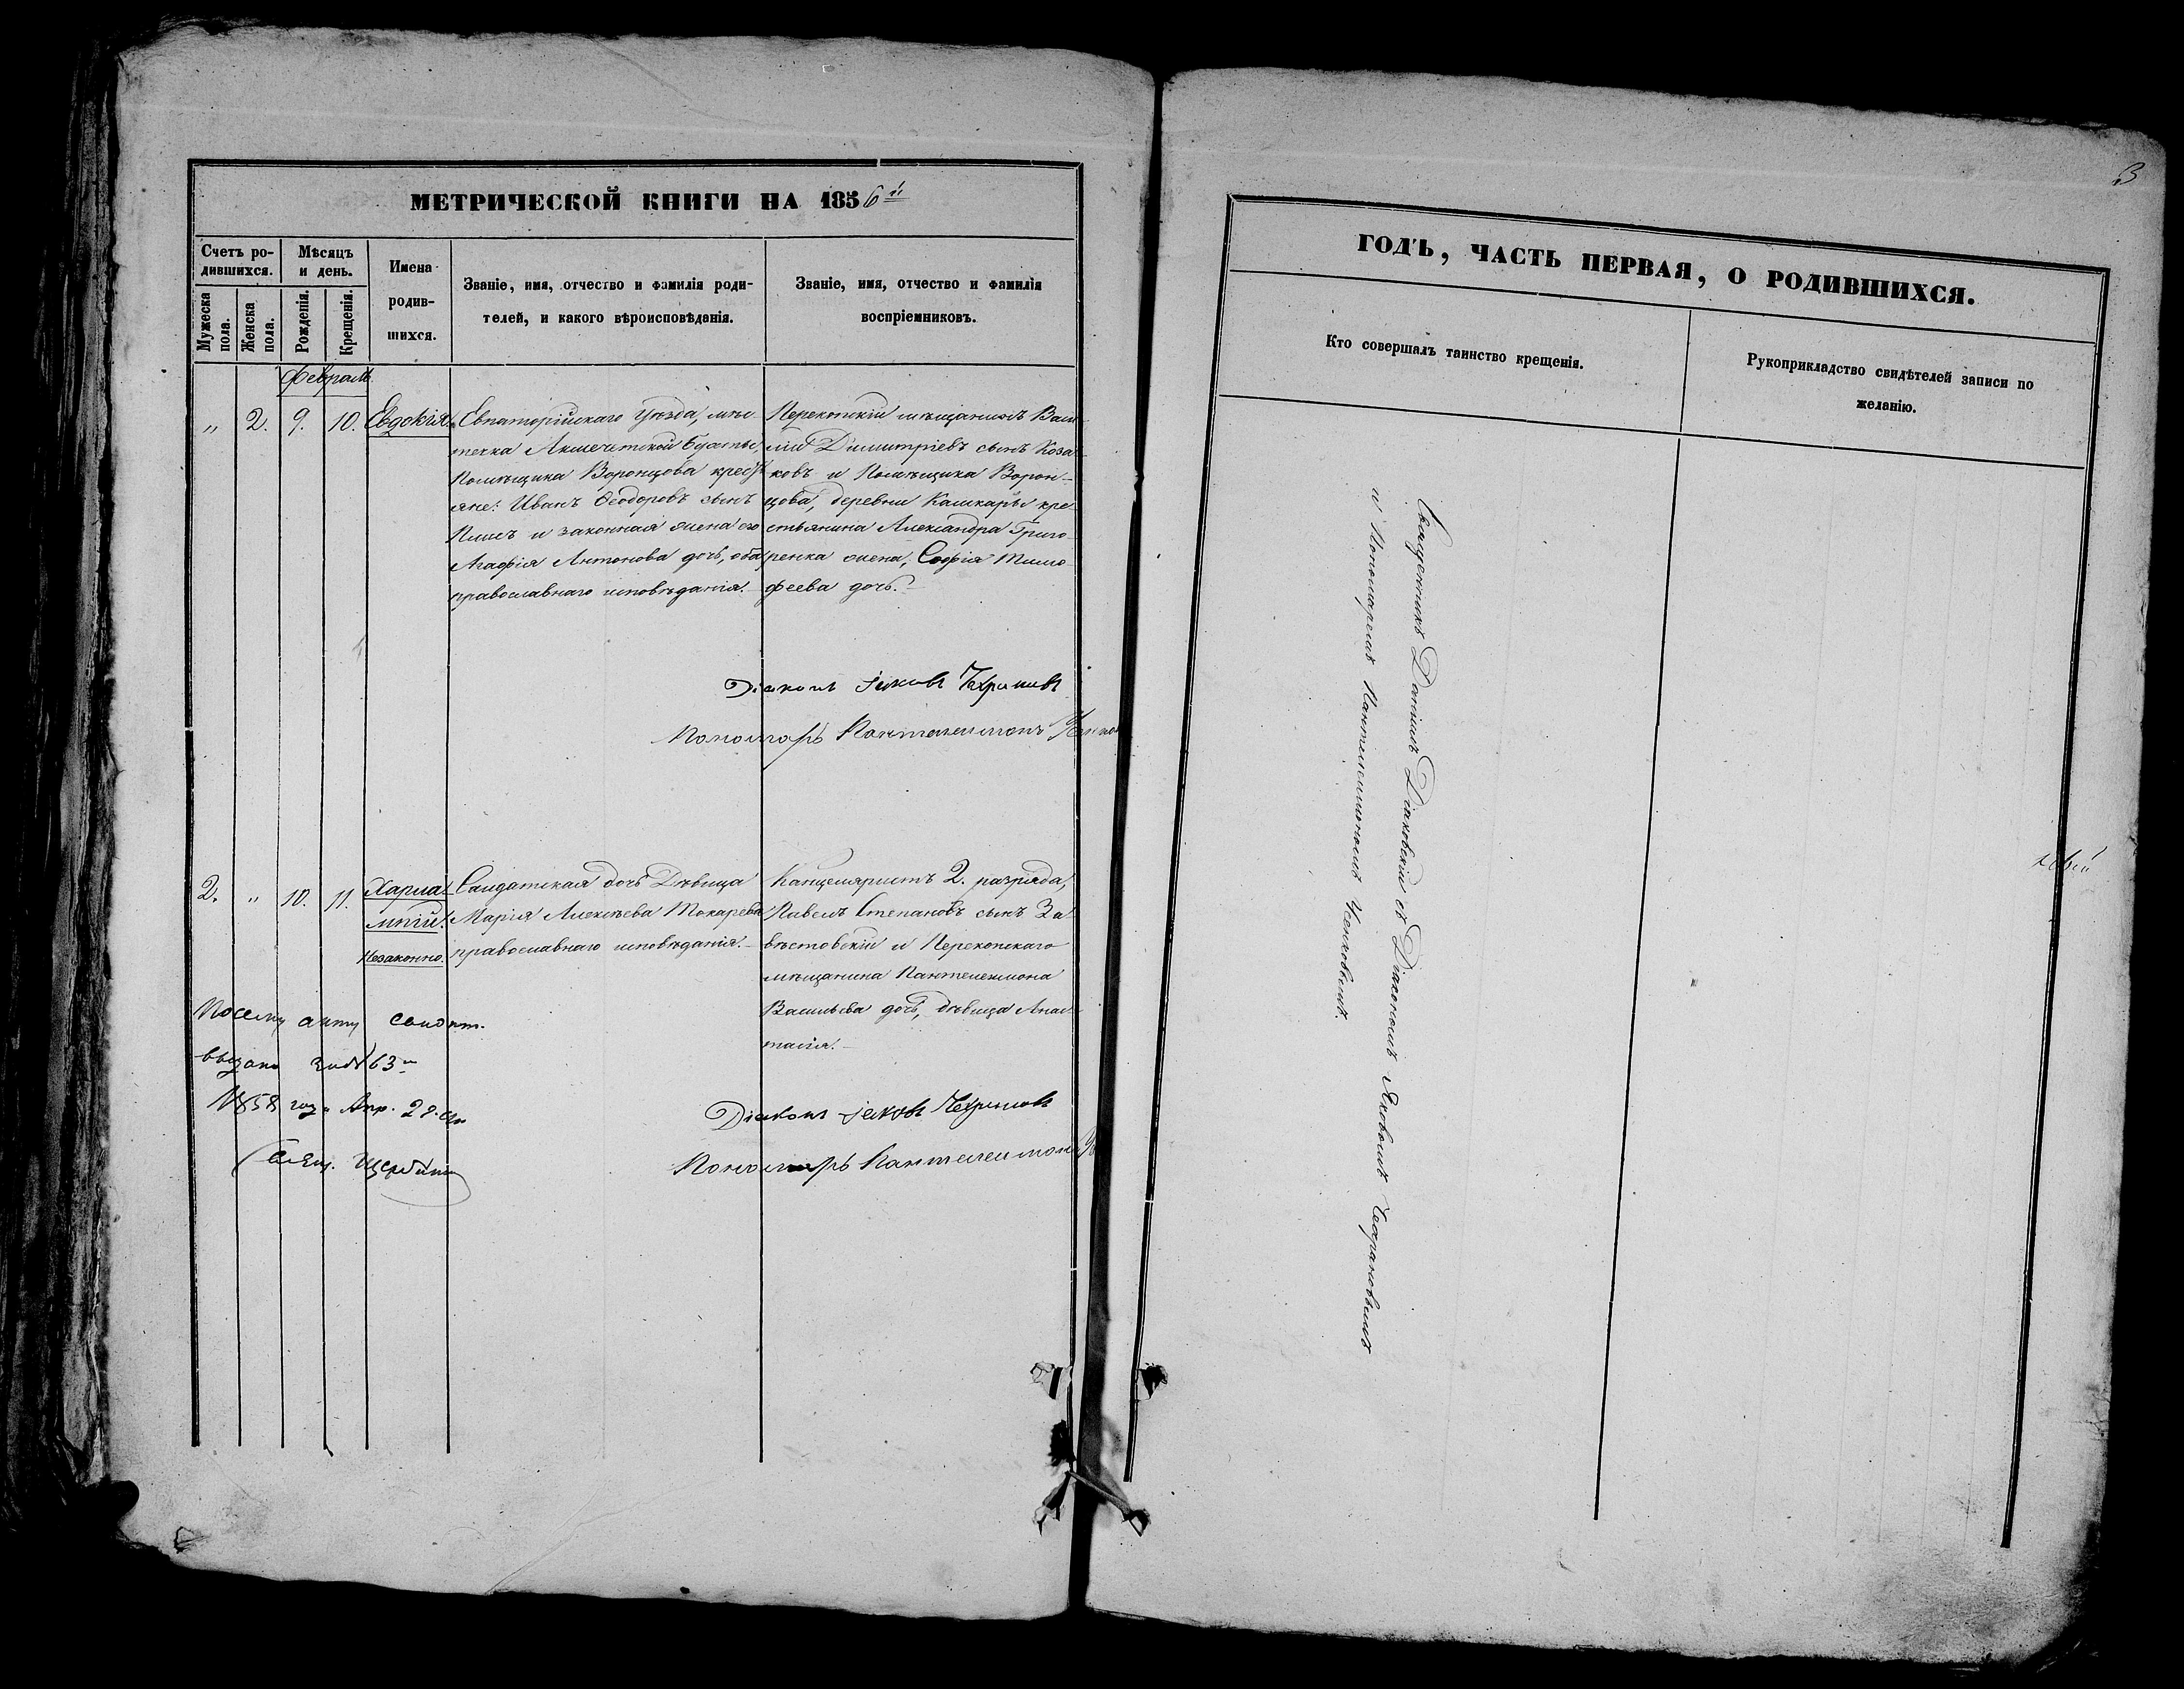 МЕТРИЧЕСКОЙ КНИГИ НА 1856й
Счетъ ро-
дившихся.
Мѣсяцъ
и день.
Мужеска
пола.
Женска
пола.
Рожденія.
Крещенія.
Имена
родив-
шихся.
Званіе, имя, отчество и фамилія роди-
телей, и какого вѣроисповѣданія.
Званіе, имя, отчество и фамилія
воспріемниковъ.
Февраль
„ 2. 9. 10. Евдокія.
Евпаторійскаго Уѣзда, мѣс-
течка Акмечетской бухты,
Помѣщика Воронцова кресть
яне: Иванъ Ѳеодоровъ сынъ
и законная жена его
Агафія Антонова дочь, оба
православнаго исповѣданія.
Перекопскій мѣщанинъ Васи
лій Димитріевъ сынъ Коза-
ковъ и Помѣщика Ворон-
цова, деревни Кашкары кре-
стьянина Александра Григо-
ренка жена, Софія Тимо
феева дочь.
Діаконъ Іаковъ
Пономарь Пантелеимонъ
2. „ 10. 11. Харла-
мпій.
Незаконно.
Солдатская дочь Дѣвица
Марія Алексѣева Токарева
православнаго исповѣданія.
Канцеляристъ 2. разряда,
Павелъ Степановъ сынъ За-
вѣстовскій и Перекопскаго
мѣщанина Пантелеимона
Васильева дочь, дѣвица Анас-
тасія.
По сему акту
выдано за № 63
1858 года Апр. 28
Свящ. Щербина
Діаконъ Іаковъ
Пономарь Пантелеимонъ
3
ГОДЪ, ЧАСТЬ ПЕРВАЯ, О РОДИВШИХСЯ.
Кто совершалъ таинство крещенія.
Рукоприкладство свидѣтелей записи по
желанію.
Священникъ Даніилъ Діаковскій съ Діакономъ Яковомъ
и Пономаремъ Пантелеимономъ